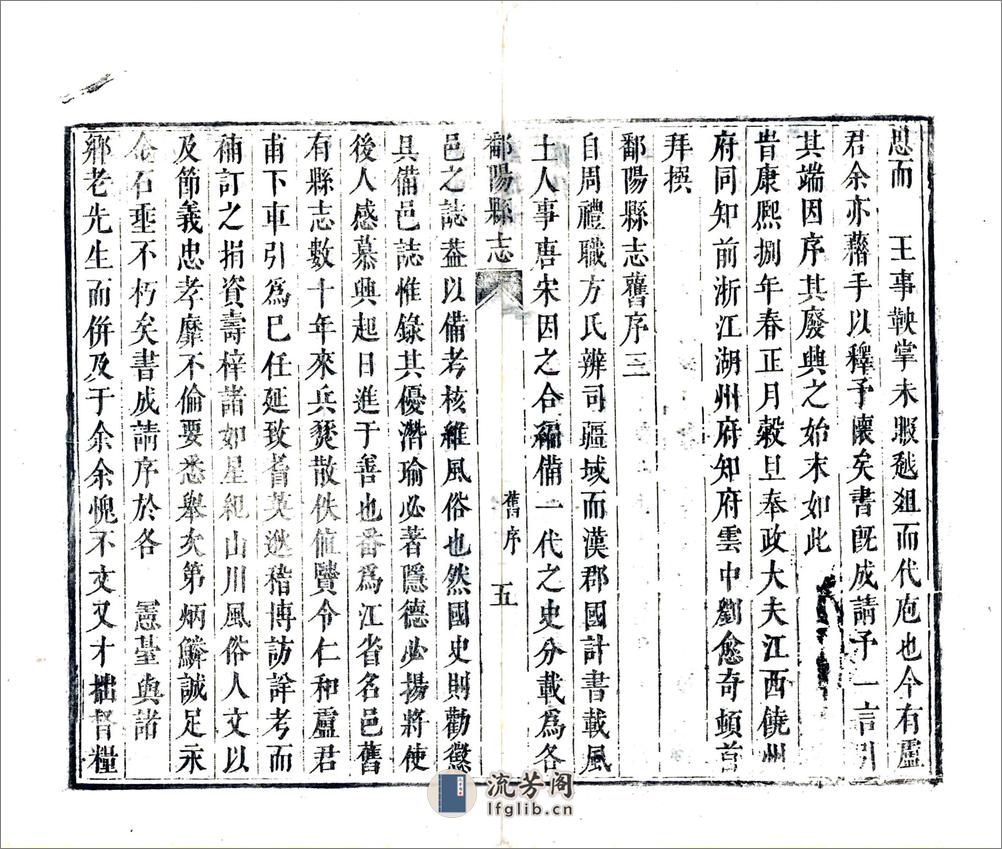 思而 王事鞅掌未暇越爼而代庖也今有盧
君余亦藉手以釋予懷矣書既成請予一言引
其端因序其廢興之始末如此
昔康熙捌年春正月穀旦奉政大夫江西饒州
府同知前浙江湖州府知府雲中劉愈奇頓首
拜撰
鄱陽縣志舊序三
自周禮職方氏辨司疆域而漢郡國計書載風
土人事唐宋因之合編備一代之史分載為各
鄱陽縣志 舊序 五
邑之誌葢以備考核維風俗也然國史則勸懲
具備邑誌惟錄其優潛瑜必著隱德必揚將使
後人感慕興起日進于善也番為江省名邑舊
有縣志數十年來兵燹散佚值賢令仁和盧君
甫下車引為巳任延致耆英逖稽博訪詳考而
補訂之捐資壽梓諸如星紀山川風俗人文以
及節義忠孝靡不倫要悉舉次第炳鱗誠足永
金石埀不朽矣書成請序於各 憲臺與諸
鄉老先生而併及于余余愧不文又才拙督糧
流芳阁
lfglib.cn